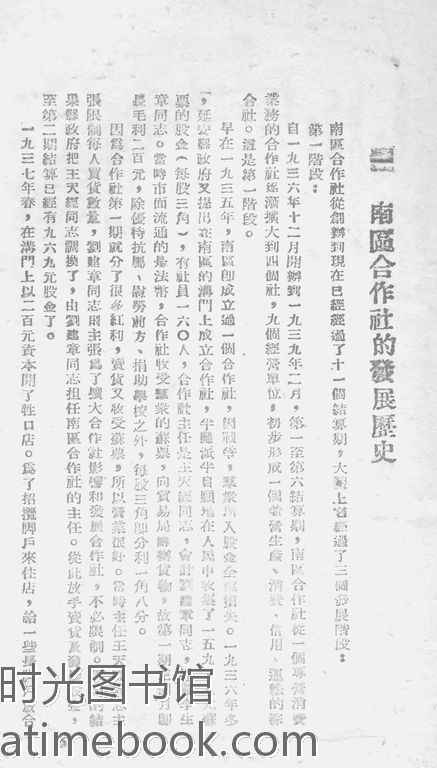 二 南區合作社的發展歷史
南區合作社從創辦到現在已經經過了十一個結算期，大體上它經過了三個發展階段：
第一階段：
自一九三六年十二月開辦到一九三九年二月，第一至第六結算期，南區合作社從一個專營消費
業務的合作社逐漸擴大到四個社，九個經營單位，初步形成一個兼營生產、消費、信用、運輸的綜
合社。這是第一階段。
早在一九三五年，南區即成立過一個合作社，因戰爭，羣衆所入股金全
一九三六年
，延安縣政府又提出在南區的溝門上成立合作社，半勉派半自願地在人民中收集了一五九
票的股金（每股三角），有社員一六〇人，合作社主任是王天經同志，會計劉建章同志，
章同志。當時市面流通的是法幣，合作社收受羣衆的蘇票，向貿易局辦貨物，故第一期
長毛利二百元，除優待抗屬、慰勞前方、捐助學校之外，每股三角即分利一角八分。
因爲合作社第一期就分了很多紅利，賣貨又收受蘇票，所以營業很好。當時主任王天
志主
張限制每人買貨數量，劉建章同志則主張爲了擴大合作社影響和發展合作社，不必限制。
的結
果縣政府把王天經同志調換了，由劉建章同志担任南區合作社的主任。從此放手賣貨
，
至第二期結算已經有九六九元股金了。
一九三七年春，在溝門上以二百元資本開了牲口店。爲了招攬脚戶來住店，給一些
放合
时光图书馆
atimebook.com